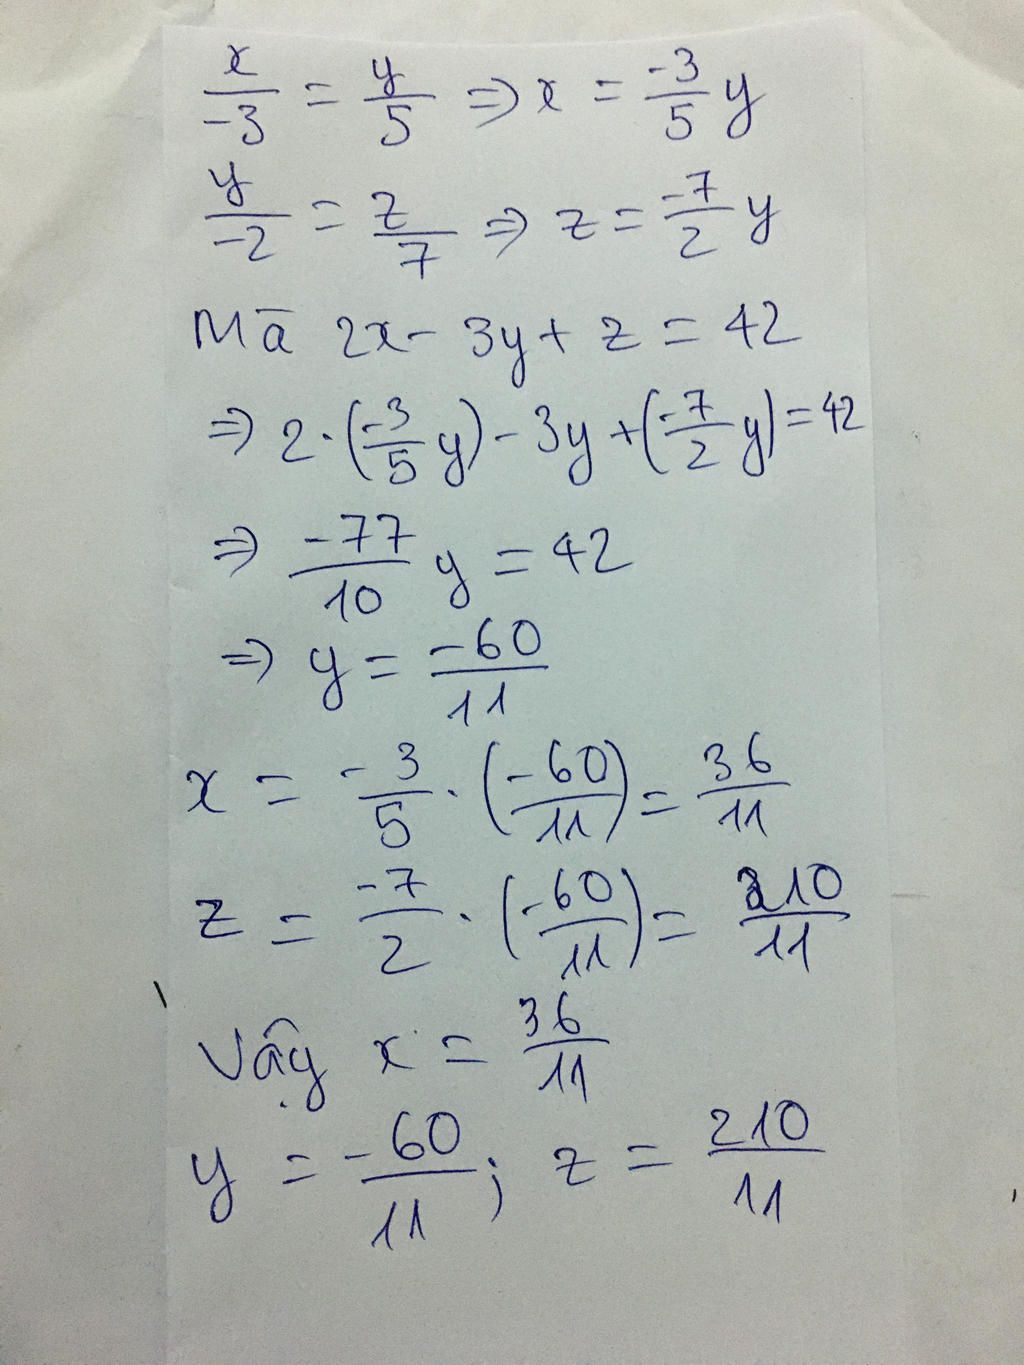 x/-3 = y/5 => x = -3/5 y
y/-2 = z/7 => z = -7/2 y
Mà 2x - 3y + z = 42
=> 2·(-3/5 y) - 3y + (-7/2 y) = 42
=> -77/10 y = 42
=> y = -60/11
x = -3/5 · (-60/11) = 36/11
z = -7/2 · (-60/11) = 210/11
Vậy x = 36/11
y = -60/11; z = 210/11